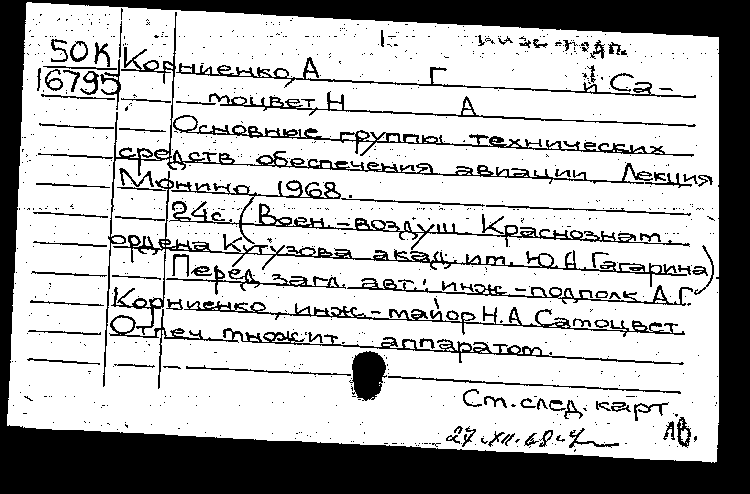 инж-подп.
50К Корниенко, А Г и Са-
16795
моцвет, Н А
Основные группы технических
средств обеспечения авиации. Лекция
Монино, 1968.
24с. (Воен.-воздуш. Краснознам.
ордена Кутузова акад. им. Ю.А.Гагарина)
Перед загл. авт.: инж-подполк. А.Г.
Корниенко, инж-майор Н.А.Самоцвет.
Отпеч. множит. аппаратом.
См. след. карт.
27.XII.68